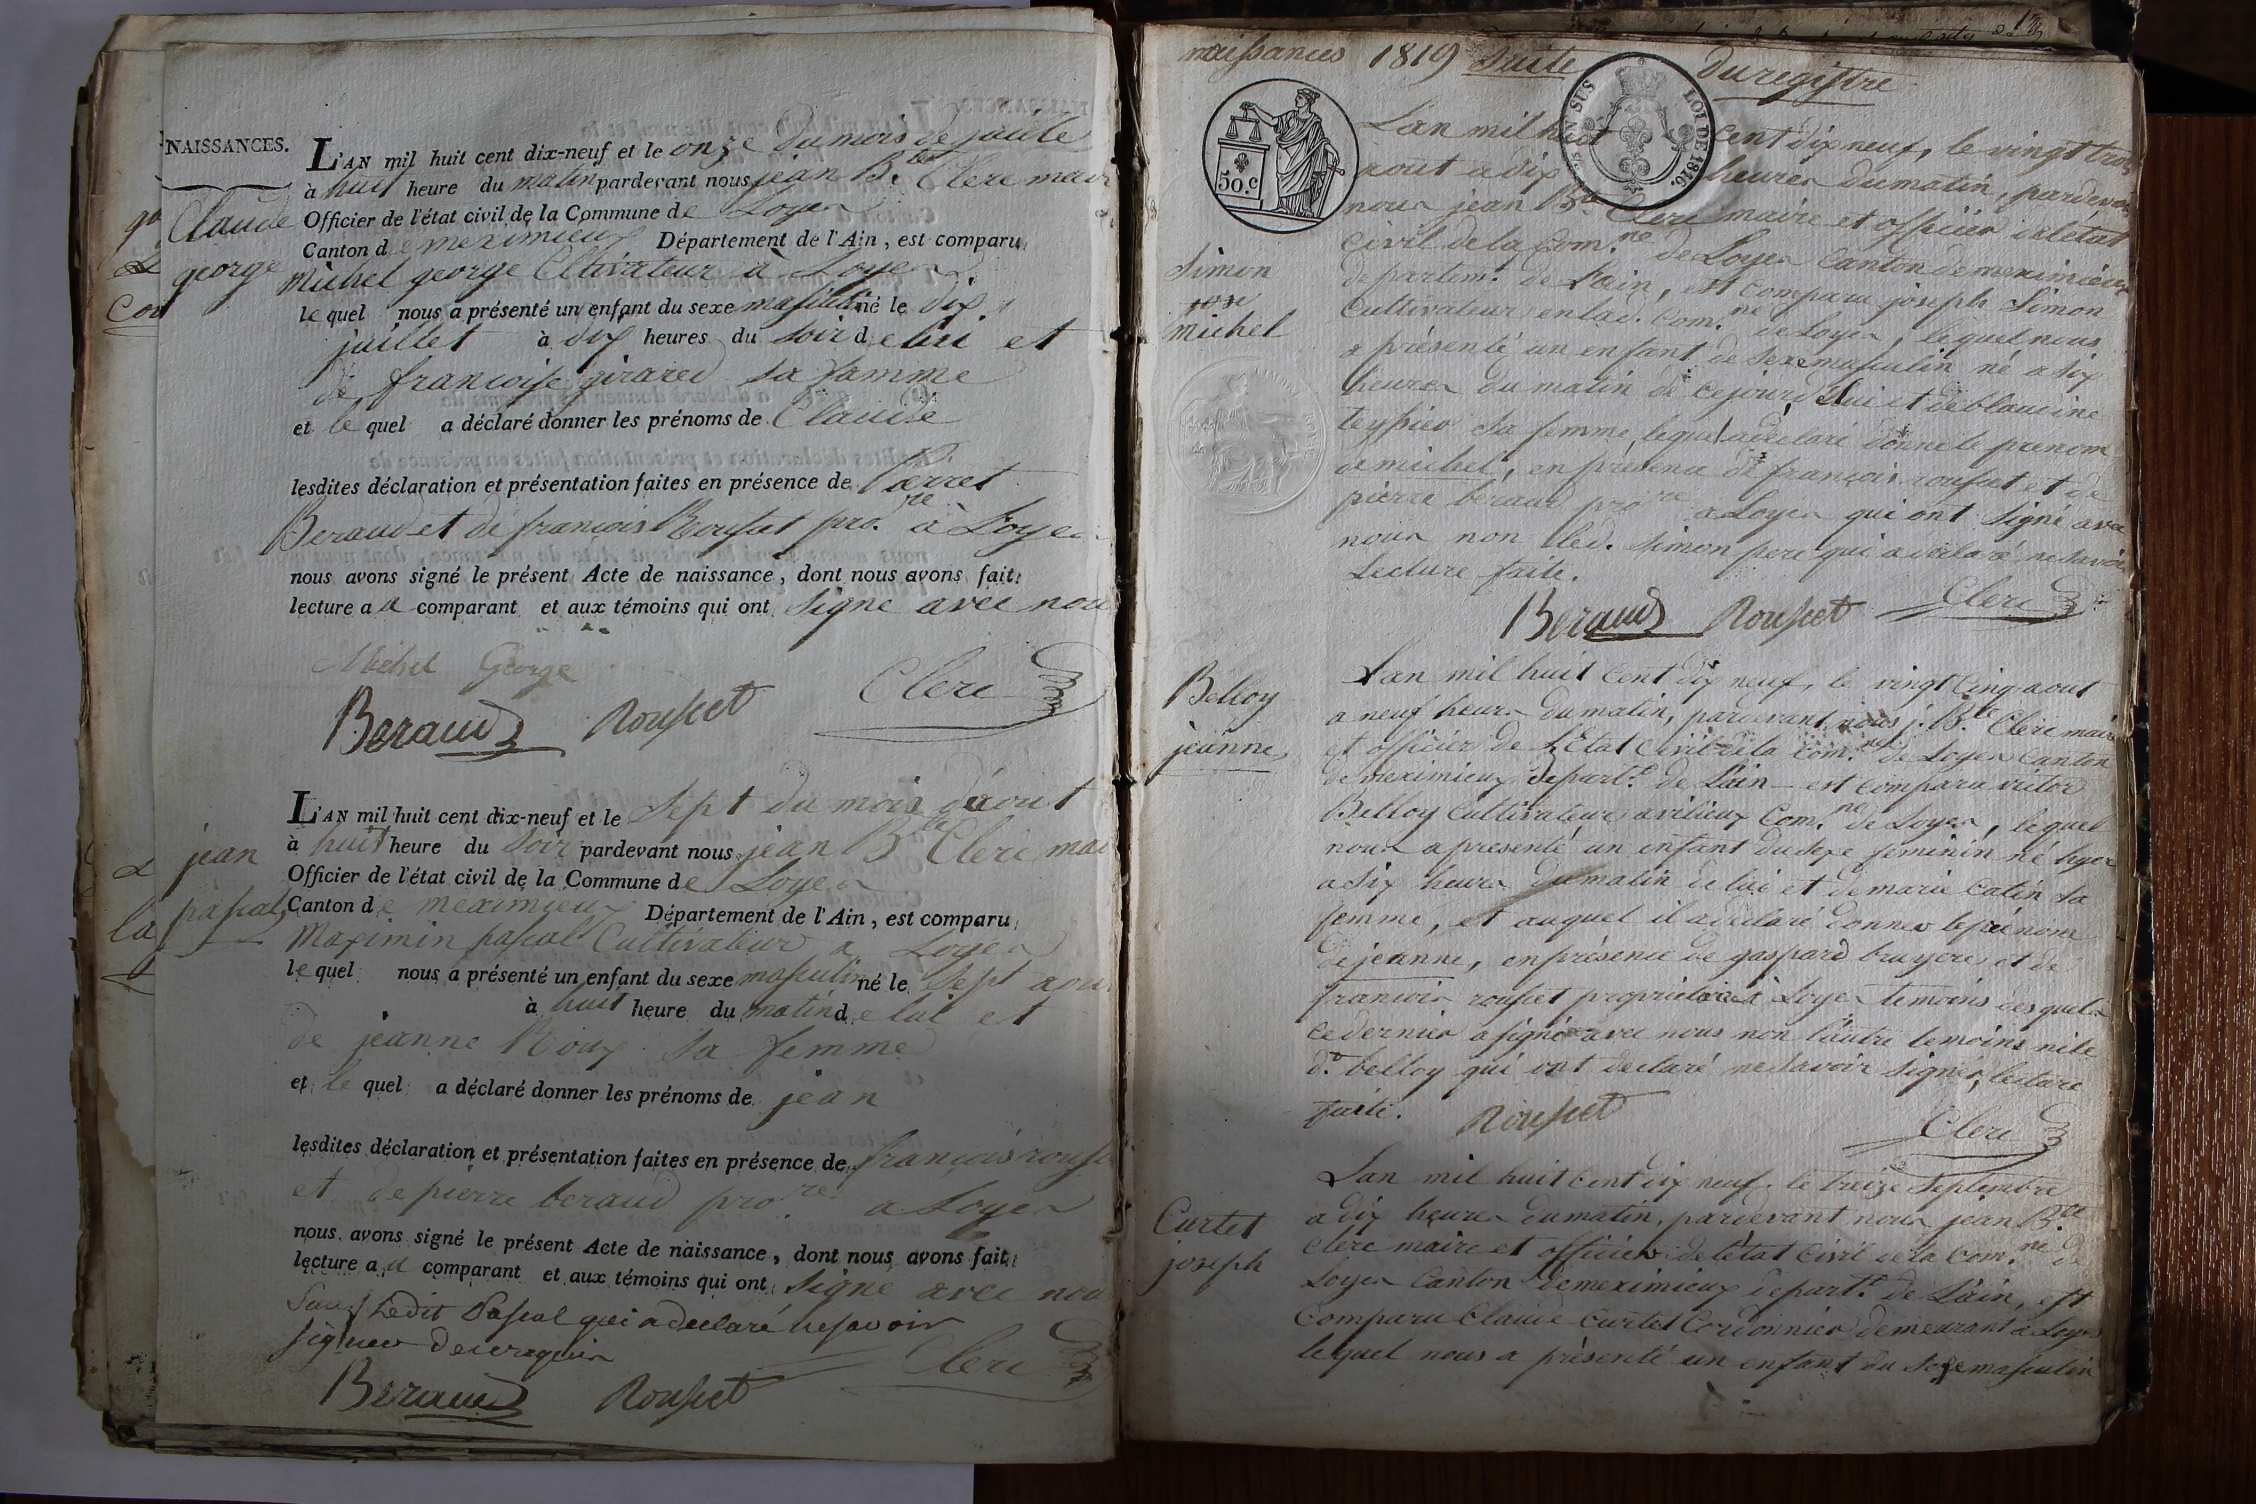 NAISSANCES.
Claude
george
L'AN mil huit cent dix-neuf et le onze du mois de juille
à huit heure du matin pardevant nous jean Bte Clerc mair
Officier de l'état civil de la Commune de Loyes
Canton de meximieux Département de l'Ain, est comparu
Michel george Cltivateur à Loyes
le quel nous a présenté un enfant du sexe masculin né le dix
juillet à dix heures du soir de lui et
de françoise girared sa famme
et le quel a déclaré donner les prénoms de Claude
lesdites déclaration et présentation faites en présence de Pierret
Beraud et de françois Rousset pro.re à Loyes
nous avons signé le présent Acte de naissance, dont nous avons fait
lecture au comparant et aux témoins qui ont signe avec nou
Michel George
Clerc
Beraud Rousset
jean
pascal
L'AN mil huit cent dix-neuf et le sept du mois d'aout
à huit heure du soir pardevant nous jean Bte Clerc mai
Officier de l'état civil de la Commune de Loyes
Canton de meximieux Département de l'Ain, est comparu
Maximin pascal Cultivateur a Loyes
le quel nous a présenté un enfant du sexe masculin né le sept aou
à huit heure du matin de lui et
de jeanne Roux sa femme
et le quel a déclaré donner les prénoms de jean
lesdites déclaration et présentation faites en présence de françois rouss
et de pierre beraud pro.res a Loyes
nous avons signé le présent Acte de naissance, dont nous avons fait
lecture au comparant et aux témoins qui ont signé avec nou
sauf Ledit Pascal qui a declaré nesavoir
signer
Clerc
Beraud Rousset
naissances 1819 Suite du registre
50.c
LOI DE 1816.
Simon
Michel
Lan mil huit cent dix neuf, le vingt trois
aout a dix heures du matin, pardevan
nous jean Bte Clerc maire et officier de l'état
civil de la Com.ne de Loyes Canton de meximieux
departem.t de Lain, est comparu joseph Simon
Cultivateur en lad. Com.ne de Loyes, lequel nous
a présenté un enfant de sexe masculin né a six
heures du matin de cejourd'hui et de blandine
teyssier sa femme, lequel a declaré donné le prenom
de michel, en présence de françois rousset et de
pierre béraud pro.re a Loyes qui ont signé avec
nous non led. Simon pere qui a declaré ne savoir
Lecture faite.
Beraud Rousset Clerc
Belloy
jeanne
Lan mil huit Cent dix neuf, le vingt Cinq aout
a neuf heurs du matin, pardevant nous j. Bte Clerc maire
et officier de l'Etat civil de la Com.ne de Loyes Canton
de meximieux depart.t de Lain est comparu victor
Belloy Cultivateur a vilieux Com.ne de Loyes, lequel
nous a presenté un enfant du sexe feminin né hyer
a six heurs du matin de lui et de marie Catin sa
femme, et auquel il a déclaré donner le prénom
de jeanne, en présence de gaspard bruyere et de
francois rousset proprietaires à Loyes temoins desquels
ce dernier a signé avec nous non l'autre temoins ni le
d.t belloy qui ont declaré ne savoir signer, lecture
faite.
Rousset Clerc
Curtet
joseph
Lan mil huit cent dix neuf, le treize Septembre
a dix heures du matin, pardevant nous jean Bte
clerc maire et officier de l'état Civil de la Com.ne de
Loyes Canton de meximieux depart.t de Lain, est
Comparu Claude Curtet Cordonnier demeurant a Loyes
lequel nous a présenté un enfant du sexe masculin